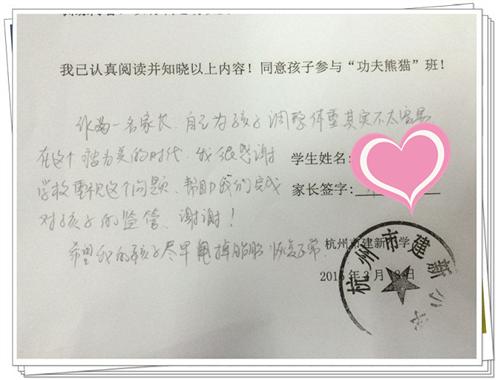 我已认真阅读并知晓以上内容！同意孩子参与“功夫熊猫”班！
作为一名家长，自己为孩子调整体重其实不太容易
在这个瘦为美的时代，我很感谢
学校重视这个问题、帮助我们完成
对孩子的监管、谢谢！
希望我的孩子尽早甩掉脂肪 恢复正常
学生姓名：
家长签字：
杭州市建新小学
杭州市建新小学